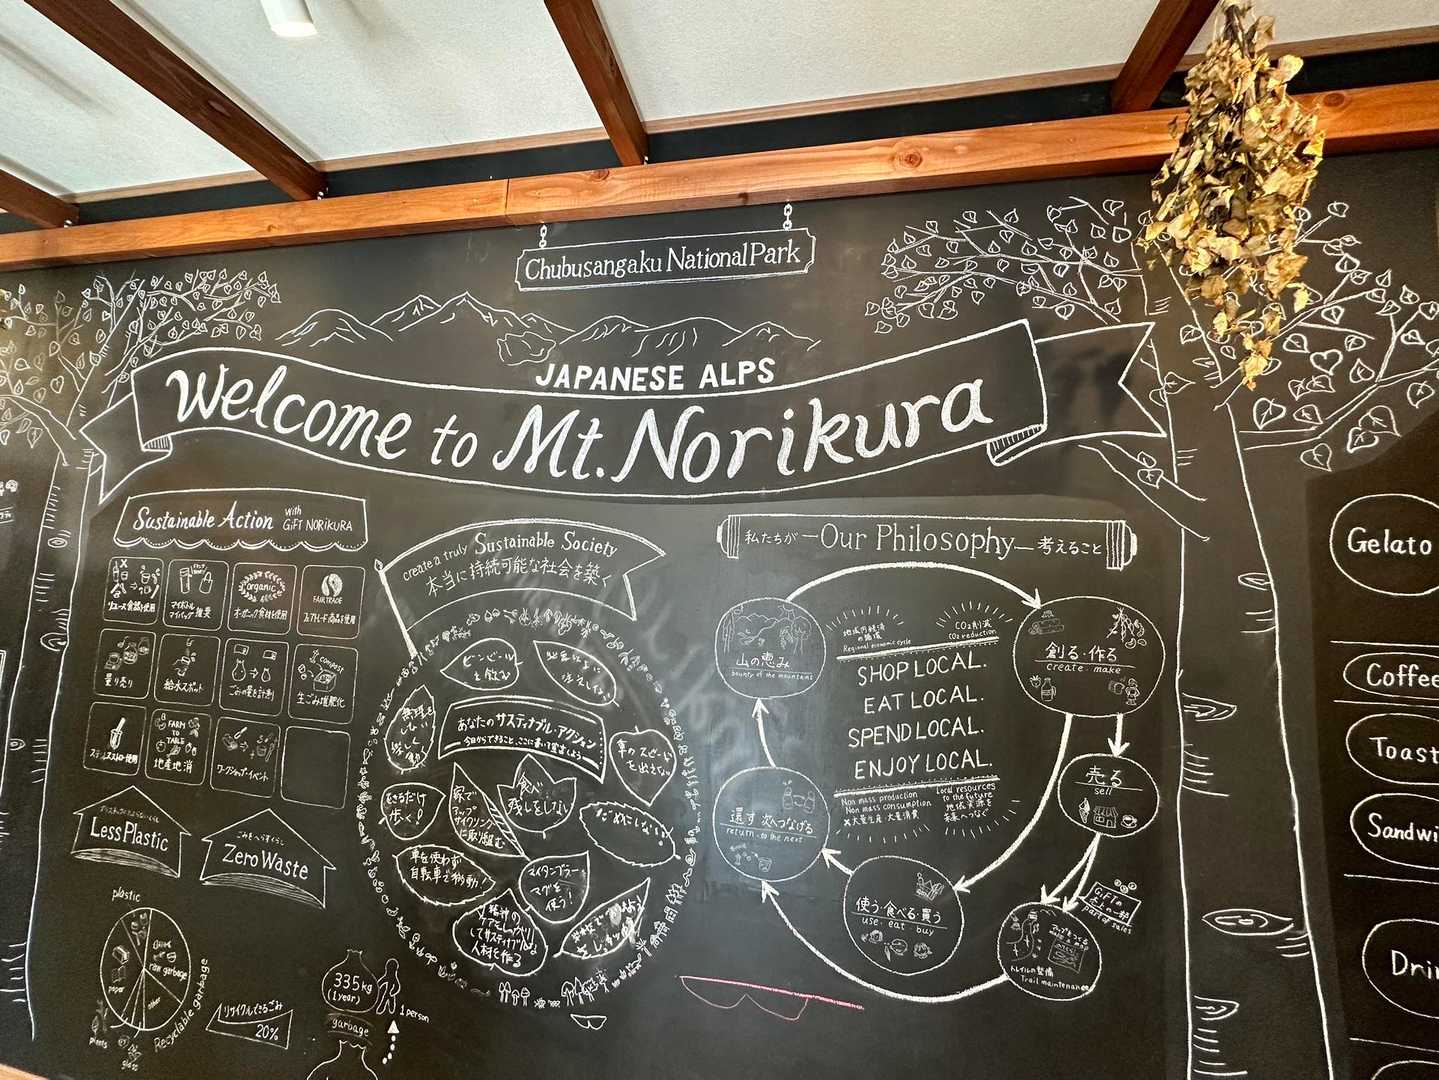 Chubusangaku National Park
JAPANESE ALPS
Welcome to Mt. Norikura
Sustainable Action with
GiFT NORiKURA
リユース食器を使用
マイボトル
マイバッグ推奨
organic
オーガニック食材を使用
FAIRTRADE
フェアトレード商品を使用
量り売り
給水スポット
ごみの量を計測
COMPOST
生ごみ堆肥化
ステンレスストロー使用
FARM
TO
TABLE
地産地消
ワークショップ・イベント
Less Plastic
ごみをへらすくらし
Zero Waste
plastic
raw garbage
paper
other
plants
glass
Recyclable garbage
リサイクルできるごみ
20%
335kg
(1year)
1 person
garbage
create a truly Sustainable Society
本当に持続可能な社会を築く
あなたのサステイナブル・アクション
食べ
残しをしない
家で
アップ
サイクリング
に取り組む
できるだけ
歩く!
車を使わず
自転車で移動!
マイタンブラー
マイ箸を
使う!
車のスピード
を出さない
精神の
ケアをしっかり
してサスティナブルな
人材を作る
私たちが —Our Philosophy— 考えること
山の恵み
bounty of the mountains
地域内経済
の循環
Regional economic cycle
CO2削減
CO2 reduction
SHOP LOCAL.
EAT LOCAL.
SPEND LOCAL.
ENJOY LOCAL.
Non mass production
Non mass consumption
✕大量生産・大量消費
Local resources
to the future
地域資源を
未来へつなぐ
創る・作る
create・make
売る
sell
GiFTの
売上の一部
part of
sales
トレイルの整備
Trail maintenance
使う・食べる・買う
use・eat・buy
還す 次へつなげる
return・to the next
Gelato
Coffee
Toast
Sandwi
Drin